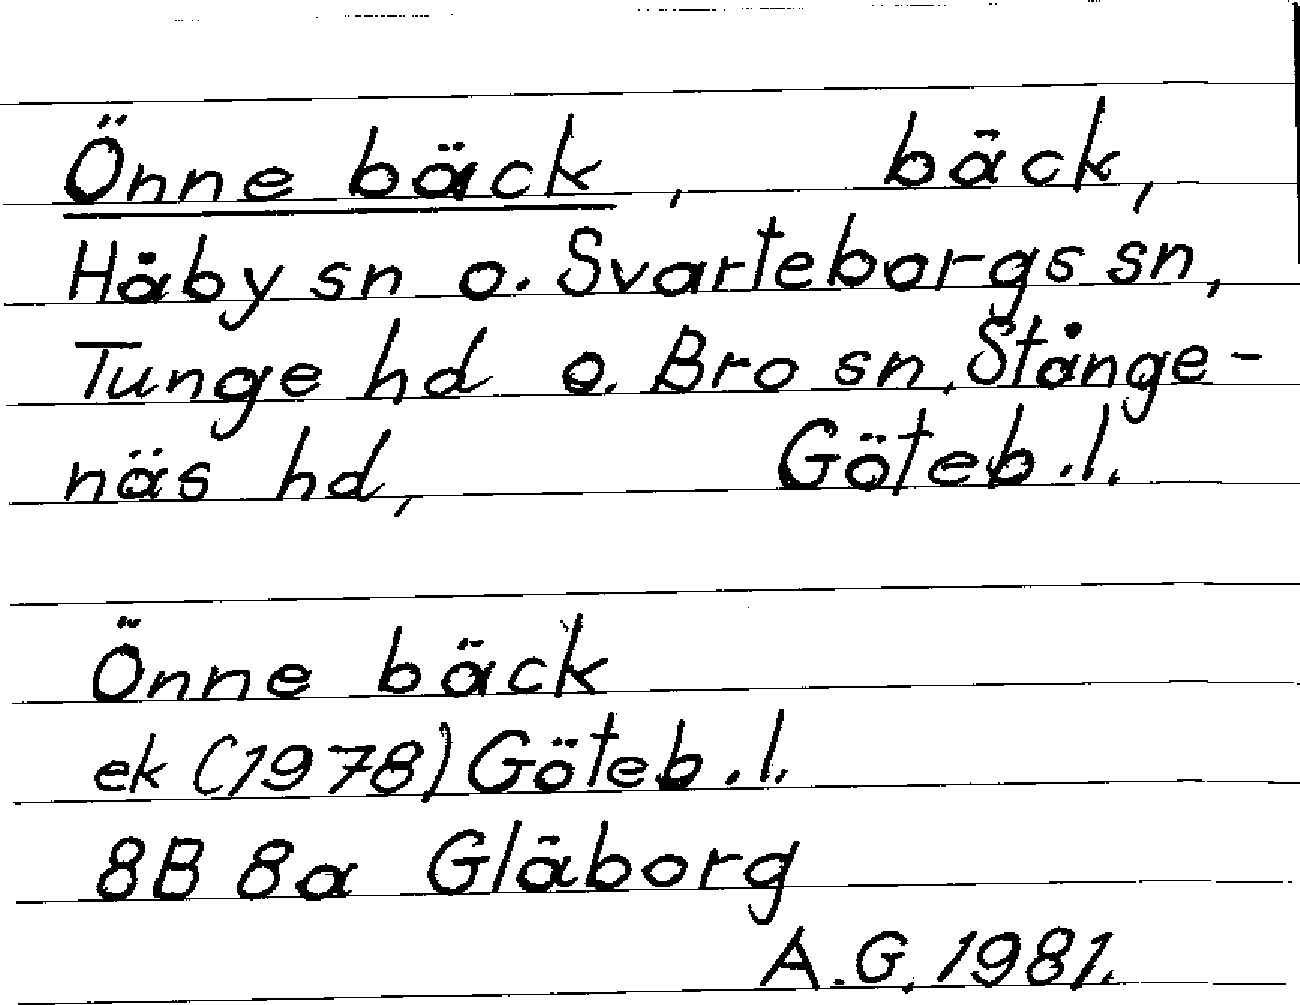 Önne bäck, bäck,
Håby sn o. Svarteborgs sn,
Tunge hd o. Bro sn, Stånge-
näs hd, Göteb.l.
Önne bäck
ek (1978) Göteb.l.
8B 8a Gläborg
A.G. 1981.